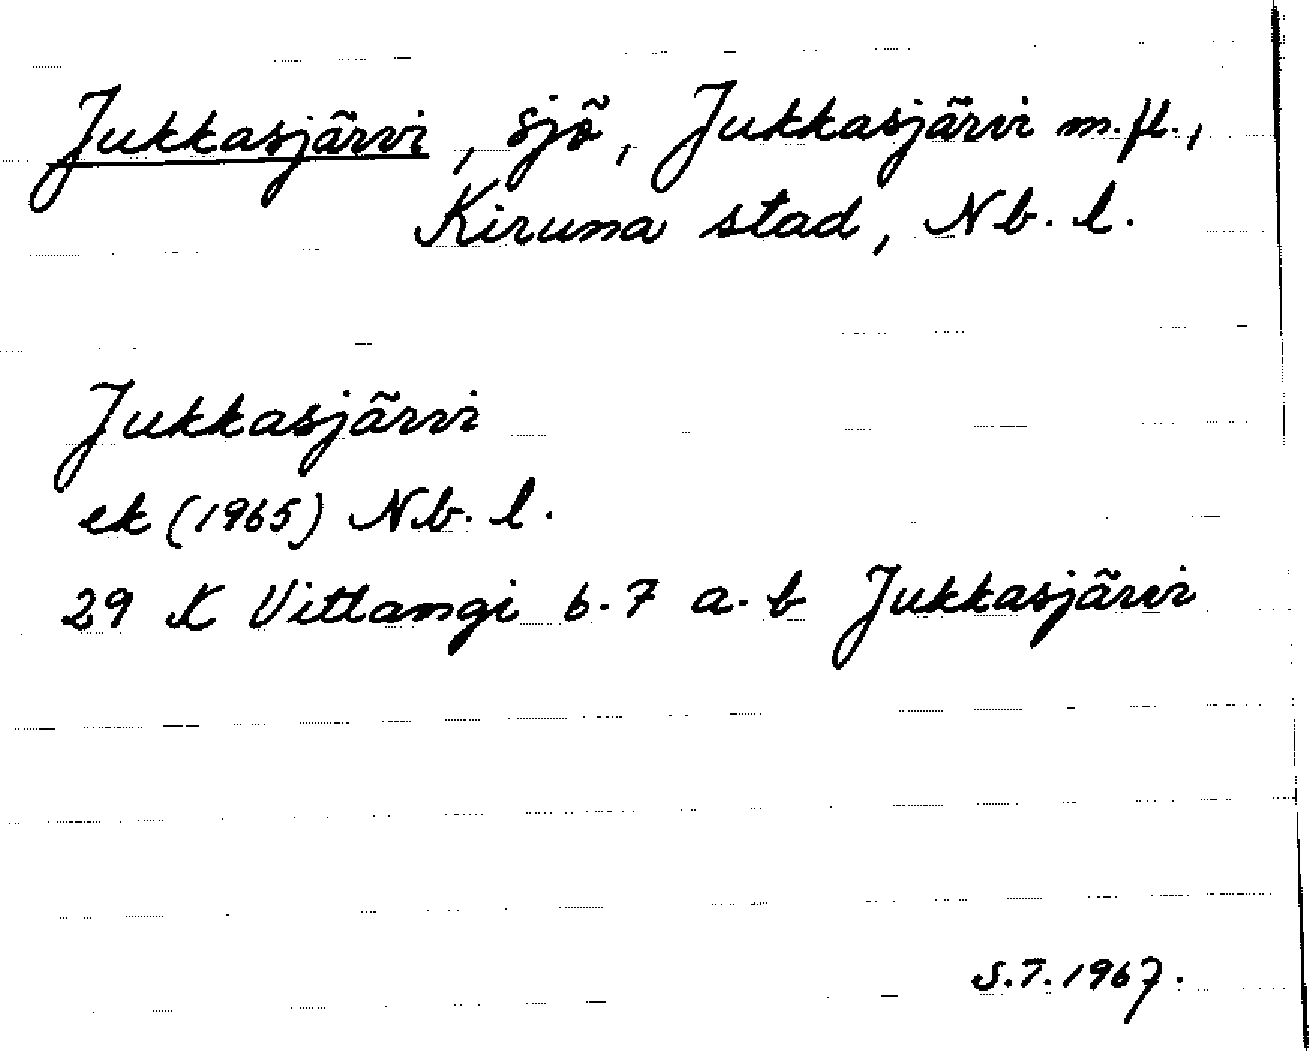 Jukkasjärvi, sjö, Jukkasjärvi m.fl.,
Kiruna stad, Nb. l.
Jukkasjärvi
ek (1965) Nb. l.
29 K Vittangi 6-7 a-b Jukkasjärvi
S.T. 1967.